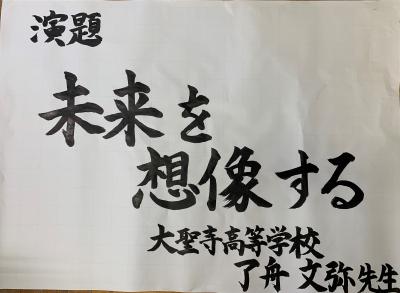 演題
未来を
想像する
大聖寺高等学校
了舟 文弥先生